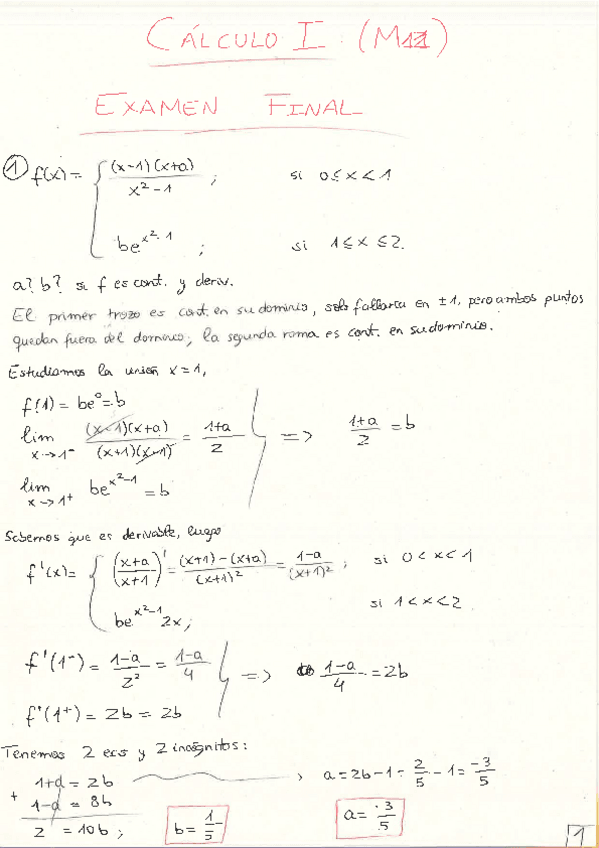 CÁLCULO I (M11)
EXAMEN FINAL
① f(x) = { (x-1)(x+a) / x²-1 ; si 0 ≤ x < 1
be^(x²-1) ; si 1 ≤ x ≤ 2.
a? b? si f es cont. y deriv.
El primer trozo es cont. en su dominio, solo fallaría en ±1, pero ambos puntos
quedan fuera del dominio; la segunda rama es cont. en su dominio.
Estudiamos la unión x = 1,
f(1) = be⁰ = b
lim x→1⁻ (x-1)(x+a) / (x+1)(x-1) = 1+a / 2 => 1+a / 2 = b
lim x→1⁺ be^(x²-1) = b
Sabemos que es derivable, luego
f'(x) = { (x+a / x+1)' = (x+1)-(x+a) / (x+1)² = 1-a / (x+1)² ; si 0 < x < 1
be^(x²-1) 2x ; si 1 < x < 2
f'(1⁻) = 1-a / 2² = 1-a / 4 => 1-a / 4 = 2b
f'(1⁺) = 2b = 2b
Tenemos 2 ecs y 2 incógnitas:
1+a = 2b → a = 2b-1 = 2/5 - 1 = -3/5
+ 1-a = 8b
2 = 10b ; b = 1/5 a = -3/5
1